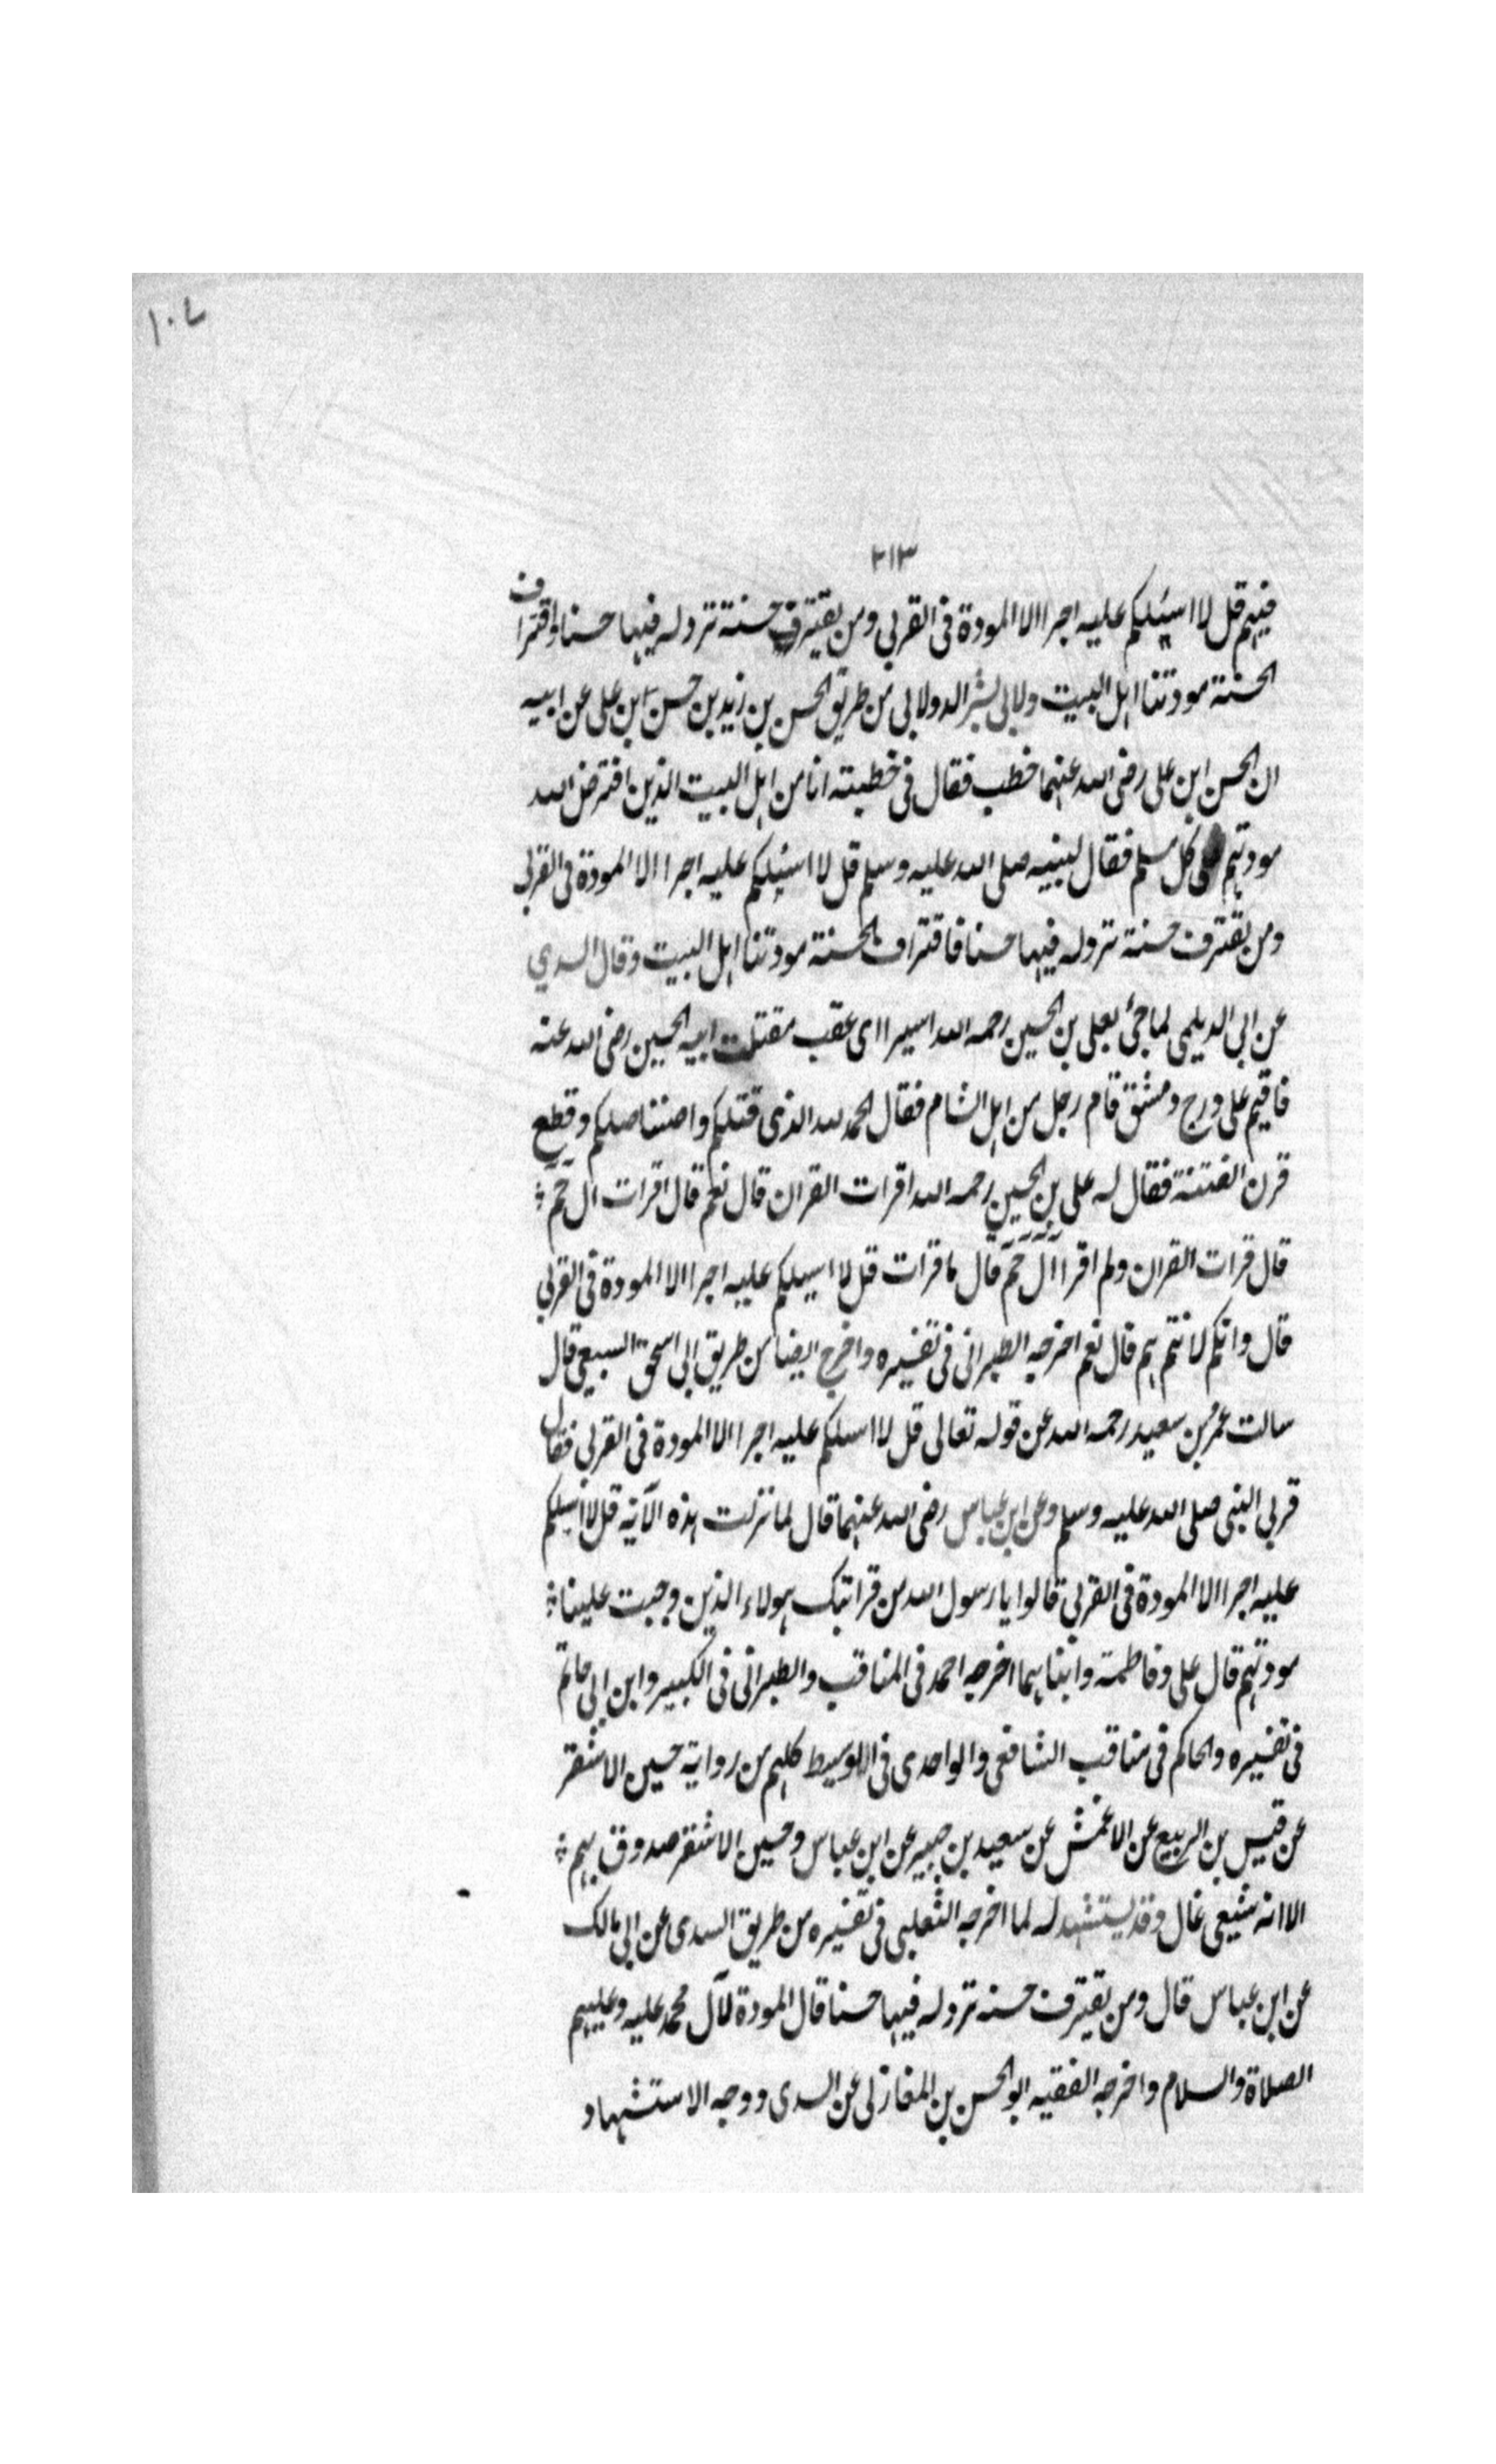 ١٠٧
٢١٣
فيهم قل لا اسئلكم عليه اجرا الا المودة فى القربى ومن يقترف حسنة نزد له فيها حسنا واقتراف
الحسنة مودتنا اهل البيت ولابى بشر الدولابى من طريق الحسن بن زيد بن حسن ابن على عن ابيه
ان الحسن ابن على رضى الله عنهما خطب فقال فى خطبته انا من اهل البيت الذين افترض الله
مودتهم على كل مسلم فقال لنبيه صلى الله عليه وسلم قل لا اسئلكم عليه اجرا الا المودة فى القربى
ومن يقترف حسنة نزد له فيها حسنا فاقتراف الحسنة مودتنا اهل البيت وقال السدي
عن ابى الديلمى لما جئ بعلى بن الحسين رحمه الله اسيرا اى عقب مقتلت ابيه الحسين رضى الله عنه
فاقيم على درج دمشق قام رجل من اهل الشام فقال الحمد لله الذى قتلكم واستناصلكم وقطع
قرن الفتنة فقال له على بن الحسين رحمه الله اقرات القران قال نعم قال اقرات ال حم
قال قرات القران ولم اقرا ال حم قال ما قرات قل لا اسيلكم عليه اجرا الا المودة فى القربى
قال وانكم لانتم هم قال نعم اخرجه الطبرانى فى تفسيره واخرج ايضا من طريق ابى اسحق السبيعى قال
سالت عمرو بن سعيد رحمه الله عن قوله تعالى قل لا اسلكم عليه اجرا الا المودة فى القربى فقال
قربى النبى صلى الله عليه وسلم وعن ابن عباس رضى الله عنهما قال لما نزلت هذه الآية قل لا اسيلكم
عليه اجرا الا المودة فى القربى قالوا يا رسول الله من قرابتك هولاء الذين وجبت علينا
مودتهم قال على وفاطمة وابناهما اخرجه احمد فى المناقب والطبرانى فى الكبير وابن ابى حاتم
فى تفسيره والحاكم فى مناقب الشافعى والواحدى فى الوسيط كلهم من رواية حسين الاشقر
عن قيس بن الربيع عن الاعمش عن سعيد بن جبير عن ابن عباس وحسين الاشقر صدوق يهم
الا انه شيعى غال وقد يستشهد له لما اخرجه الثعلبى فى تفسيره من طريق السدى عن ابى مالك
عن ابن عباس قال ومن يقترف حسنه نزد له فيها حسنا قال المودة لآل محمد عليه وعليهم
الصلاة والسلام واخرجه الفقيه ابو الحسن بن المغازلى عن السدى ووجه الاستشهاد